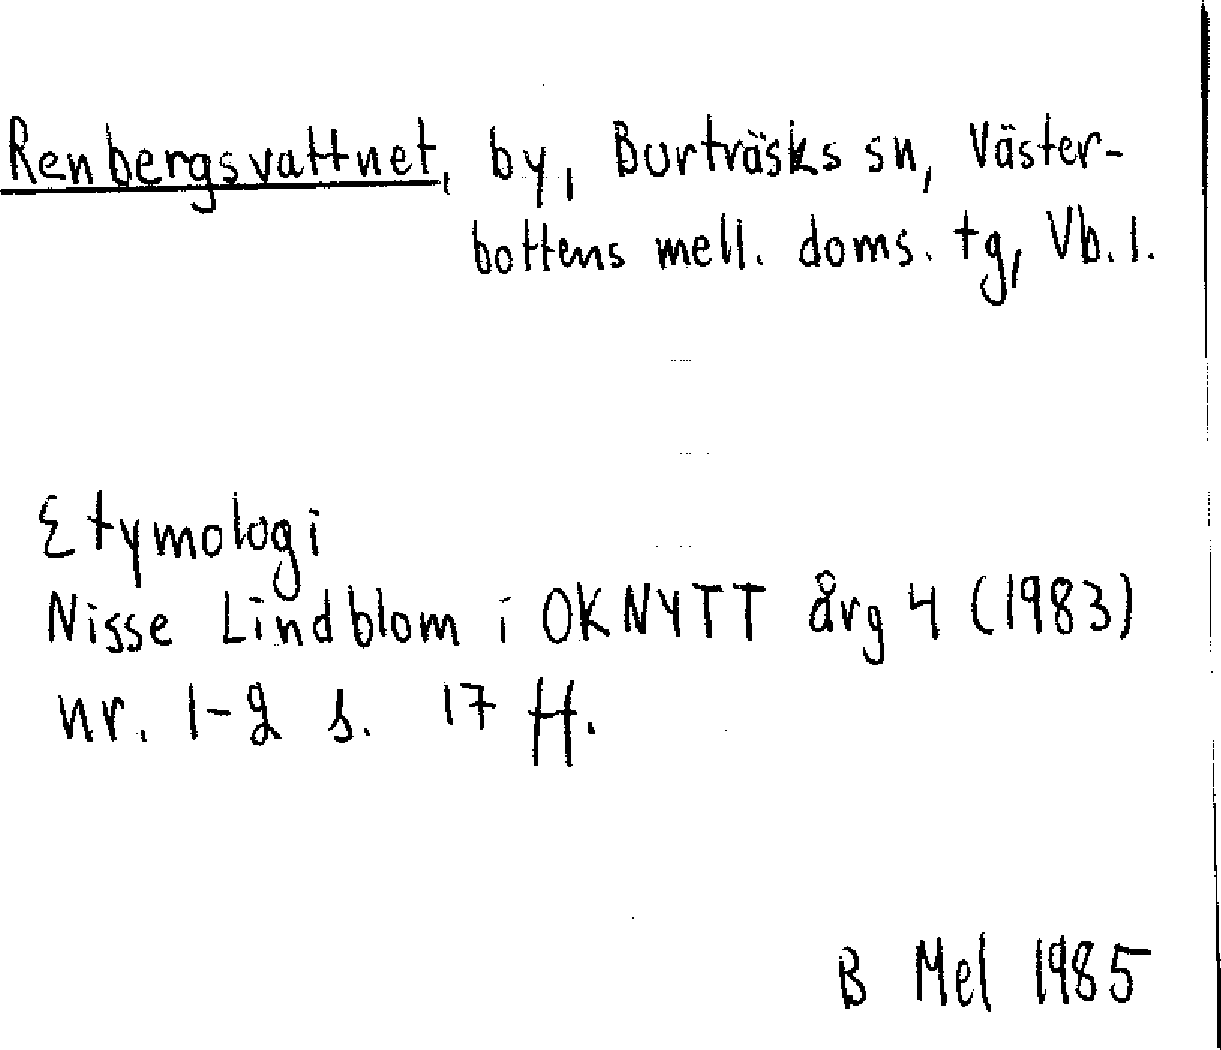 Renbergsvattnet, by, Burträsks sn, Väster-
bottens mell. doms. tg, Vb. l.
Etymologi
Nisse Lindblom i OKNYTT årg 4 (1983)
nr. 1-2 s. 17 ff.
B Mel 1985